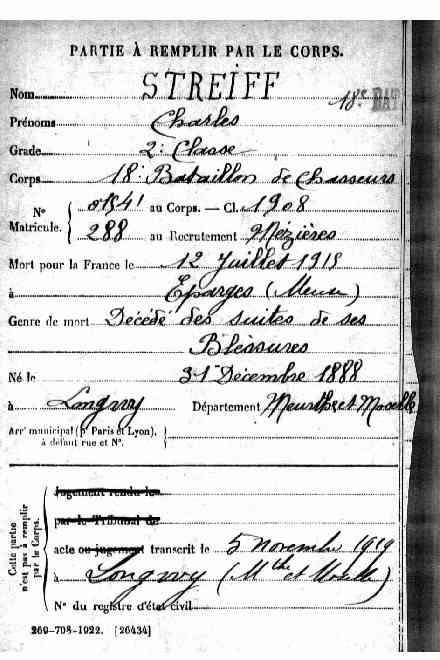 PARTIE À REMPLIR PAR LE CORPS.
Nom STREIFF
18e BAT
Prénoms Charles
Grade 2e Classe
Corps 18e Bataillon de Chasseurs
N° Matricule. { 01541 au Corps. — Cl. 1908
288 au Recrutement Mézières
Mort pour la France le 12 Juillet 1915
à Eparges (Meuse)
Genre de mort Décédé des suites de ses
Bléssures
Né le 31 Décembre 1888
à Longwy Département Meurthe et Moselle
Arrt municipal (pr Paris et Lyon), à défaut rue et N°.
Cette partie n'est pas à remplir par le Corps.
Jugement rendu le
par le Tribunal de
acte ou jugement transcrit le 5 novembre 1919
à Longwy (Mthe et Moselle)
N° du registre d'état civil
269-708-1922. [26434]